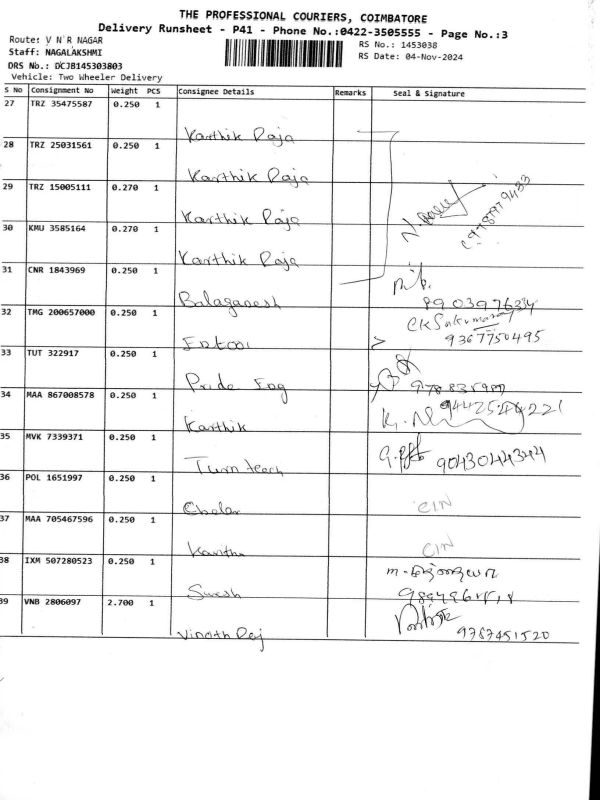 THE PROFESSIONAL COURIERS, COIMBATORE
Delivery Runsheet - P41 - Phone No.:0422-3505555 - Page No.:3
Route: V N R NAGAR
RS No.: 1453038
Staff: NAGALAKSHMI
RS Date: 04-Nov-2024
DRS No.: DCJB145303803
Vehicle: Two Wheeler Delivery
S No Consignment No Weight PCS Consignee Details Remarks Seal & Signature
27 TRZ 35475587 0.250 1
Karthik Raja
28 TRZ 25031561 0.250 1
Karthik Raja
29 TRZ 15005111 0.270 1
Karthik Raja
30 KMU 3585164 0.270 1
Karthik Raja
31 CNR 1843969 0.250 1
Balaganesh 8903976334
32 TMG 200657000 0.250 1
9367750495
33 TUT 322917 0.250 1
Pride
34 MAA 867008578 0.250 1 9442544221
Karthik
35 MVK 7339371 0.250 1
Turn teech 9043044344
36 POL 1651997 0.250 1
CIN
37 MAA 705467596 0.250 1
Kavitha CIN
38 IXM 507280523 0.250 1
Suresh
39 VNB 2806097 2.700 1
Vinoth Raj 9787451520